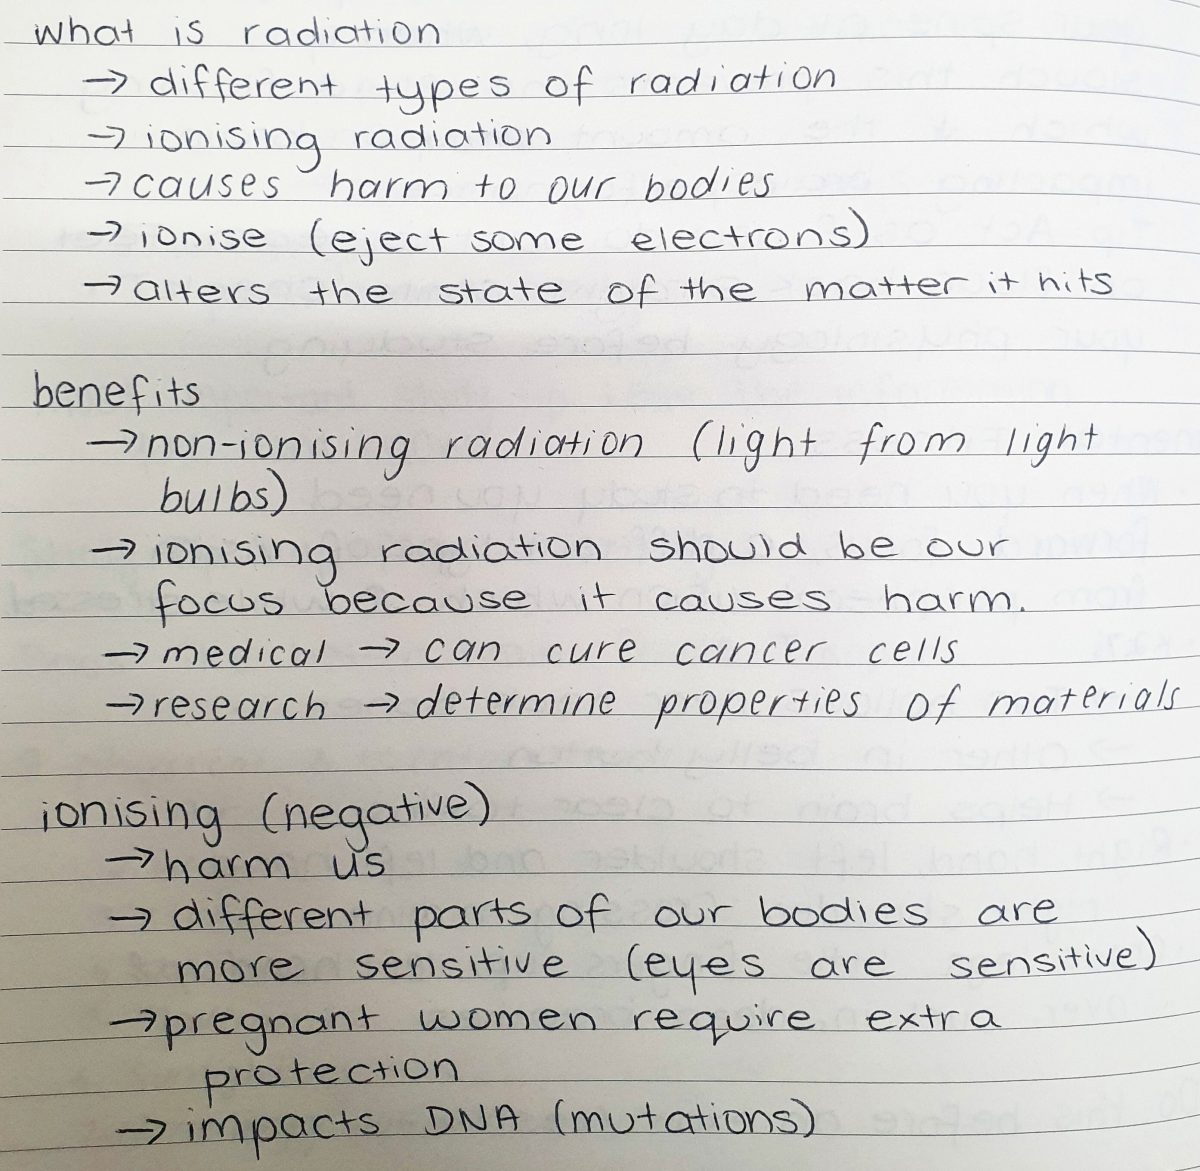 what is radiation
→ different types of radiation
→ ionising radiation
→ causes harm to our bodies
→ ionise (eject some electrons)
→ alters the state of the matter it hits
benefits
→ non-ionising radiation (light from light
bulbs)
→ ionising radiation should be our
focus because it causes harm.
→ medical → can cure cancer cells
→ research → determine properties of materials
ionising (negative)
→ harm us
→ different parts of our bodies are
more sensitive (eyes are sensitive)
→ pregnant women require extra
protection
→ impacts DNA (mutations)